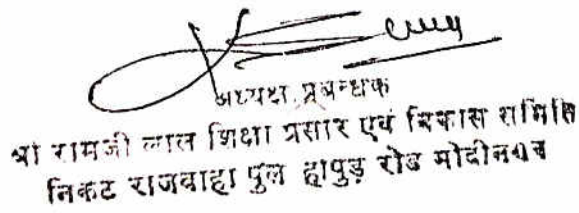 अध्यक्ष, प्रबन्धक
श्री रामजी लाल शिक्षा प्रसार एवं विकास समिति
निकट राजवाहा पुल हापुड़ रोड मोदीनगर